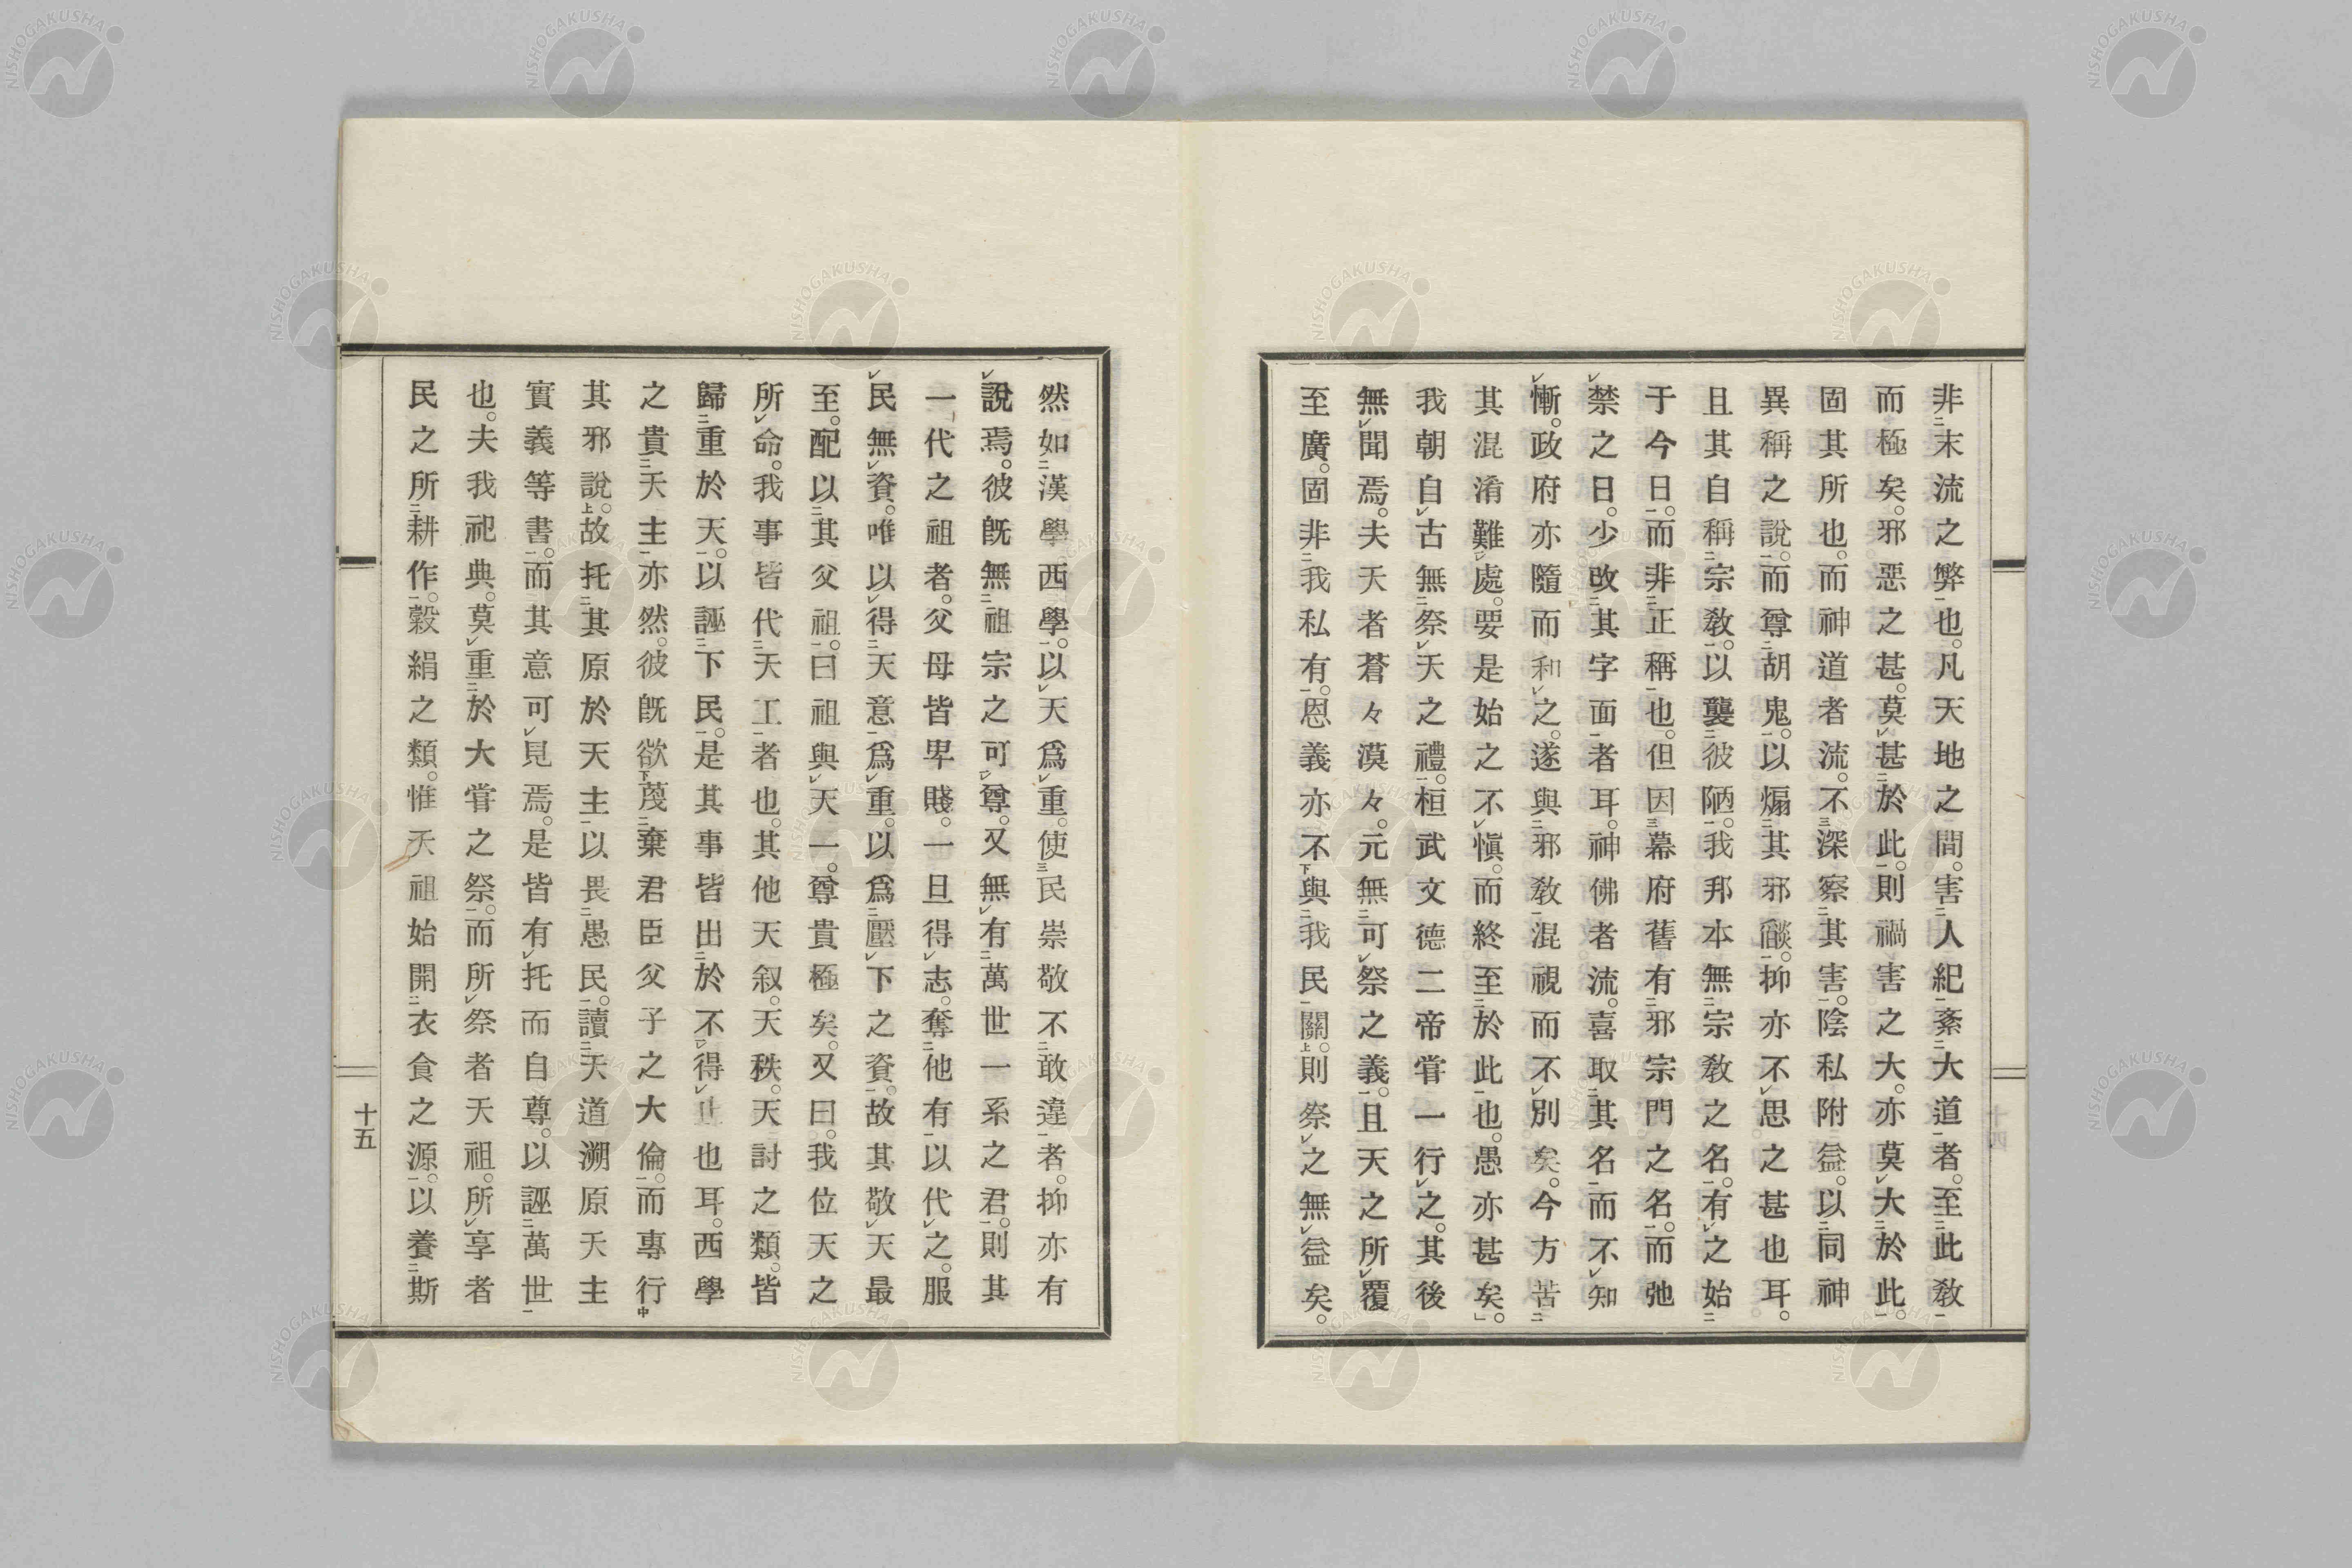 非末流之弊也。凡天地之間。害人紀紊大道者。至此教
而極矣。邪惡之甚。莫甚於此。則禍害之大。亦莫大於此。
固其所也。而神道者流。不深察其害。陰私附益。以同神
異稱之說。而尊胡鬼。以煽其邪燄。抑亦不思之甚也耳。
且其自稱宗教。以襲彼陋。我邦本無宗教之名。有之始
于今日。而非正稱也。但因幕府舊有邪宗門之名。而弛
禁之日。少改其字面者耳。神佛者流。喜取其名而不知
慚。政府亦隨而和之。遂與邪教混視而不別矣。今方苦
其混淆難處。要是始之不愼。而終至於此也。愚亦甚矣。」
我朝自古無祭天之禮。桓武文德二帝嘗一行之。其後
無聞焉。夫天者蒼々漠々。元無可祭之義。且天之所覆
至廣。固非我私有。恩義亦不與我民關。則祭之無益矣。
然如漢學西學。以天爲重。使民崇敬不敢違者。抑亦有
說焉。彼既無祖宗之可尊。又無有萬世一系之君。則其
一代之祖者。父母皆卑賤。一旦得志。奪他有以代之。服
民無資。唯以得天意爲重。以爲壓下之資。故其敬天最
至。配以其父祖。曰祖與天一。尊貴極矣。又曰。我位天之
所命。我事皆代天工者也。其他天叙。天秩。天討之類。皆
歸重於天。以誣下民。是其事皆出於不得止也耳。西學
之貴天主亦然。彼既欲蔑棄君臣父子之大倫。而專行
其邪說。故托其原於天主以畏愚民。讀天道溯原天主
實義等書。而其意可見焉。是皆有托而自尊。以誣萬世
也。夫我祀典。莫重於大嘗之祭。而所祭者天祖。所享者
民之所耕作。穀絹之類。惟天祖始開衣食之源。以養斯
十五